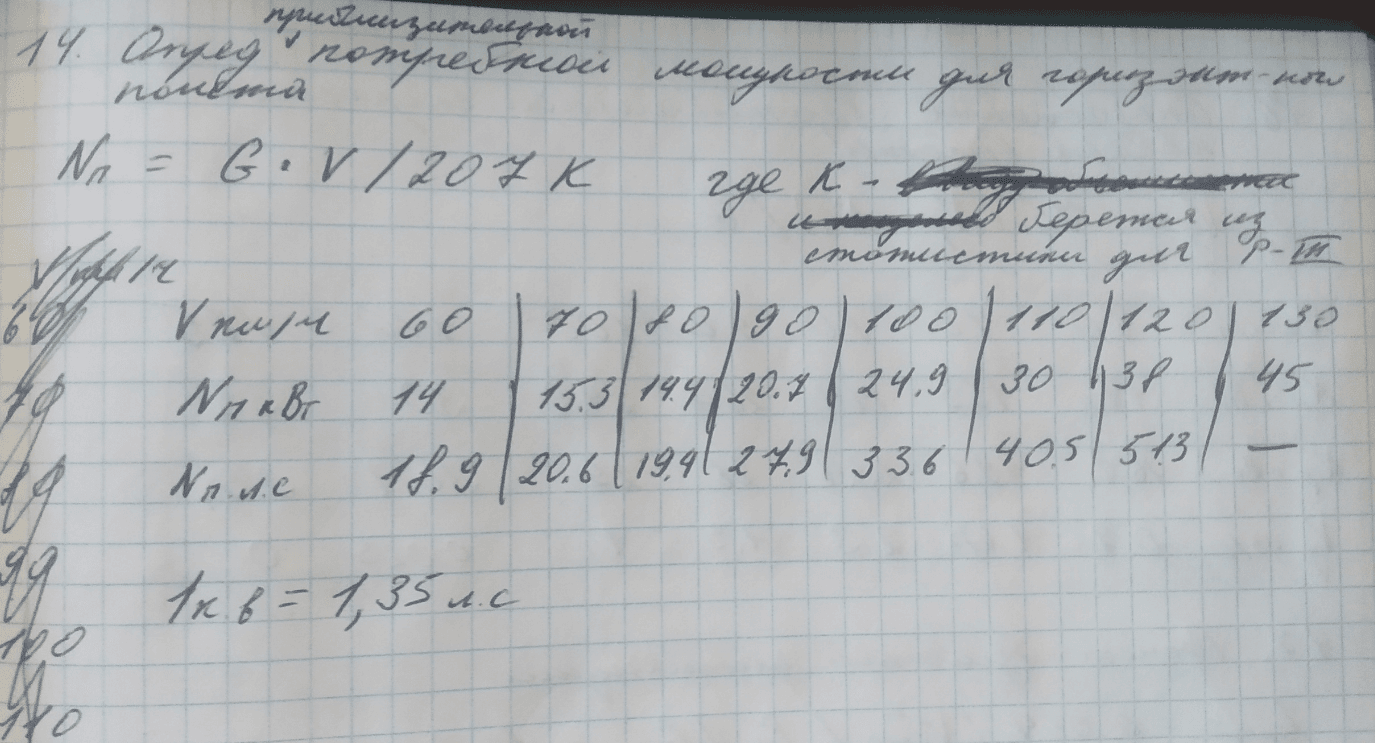 приблизительной
14. Опред потребной мощности для горизонт-ного
полета
Nп = G · V / 207 K где K -
берется из
статистики для Р-III
V км/ч
60 V км/ч 60 | 70 | 80 | 90 | 100 | 110 | 120 | 130
70 Nп кВт 14 | 15.3 | 14.4 | 20.7 | 24.9 | 30 | 38 | 45
Nп л.с 18.9 | 20.6 | 19.4 | 27.9 | 33.6 | 40.5 | 51.3 | —
1к.в = 1,35 л.с
100
110